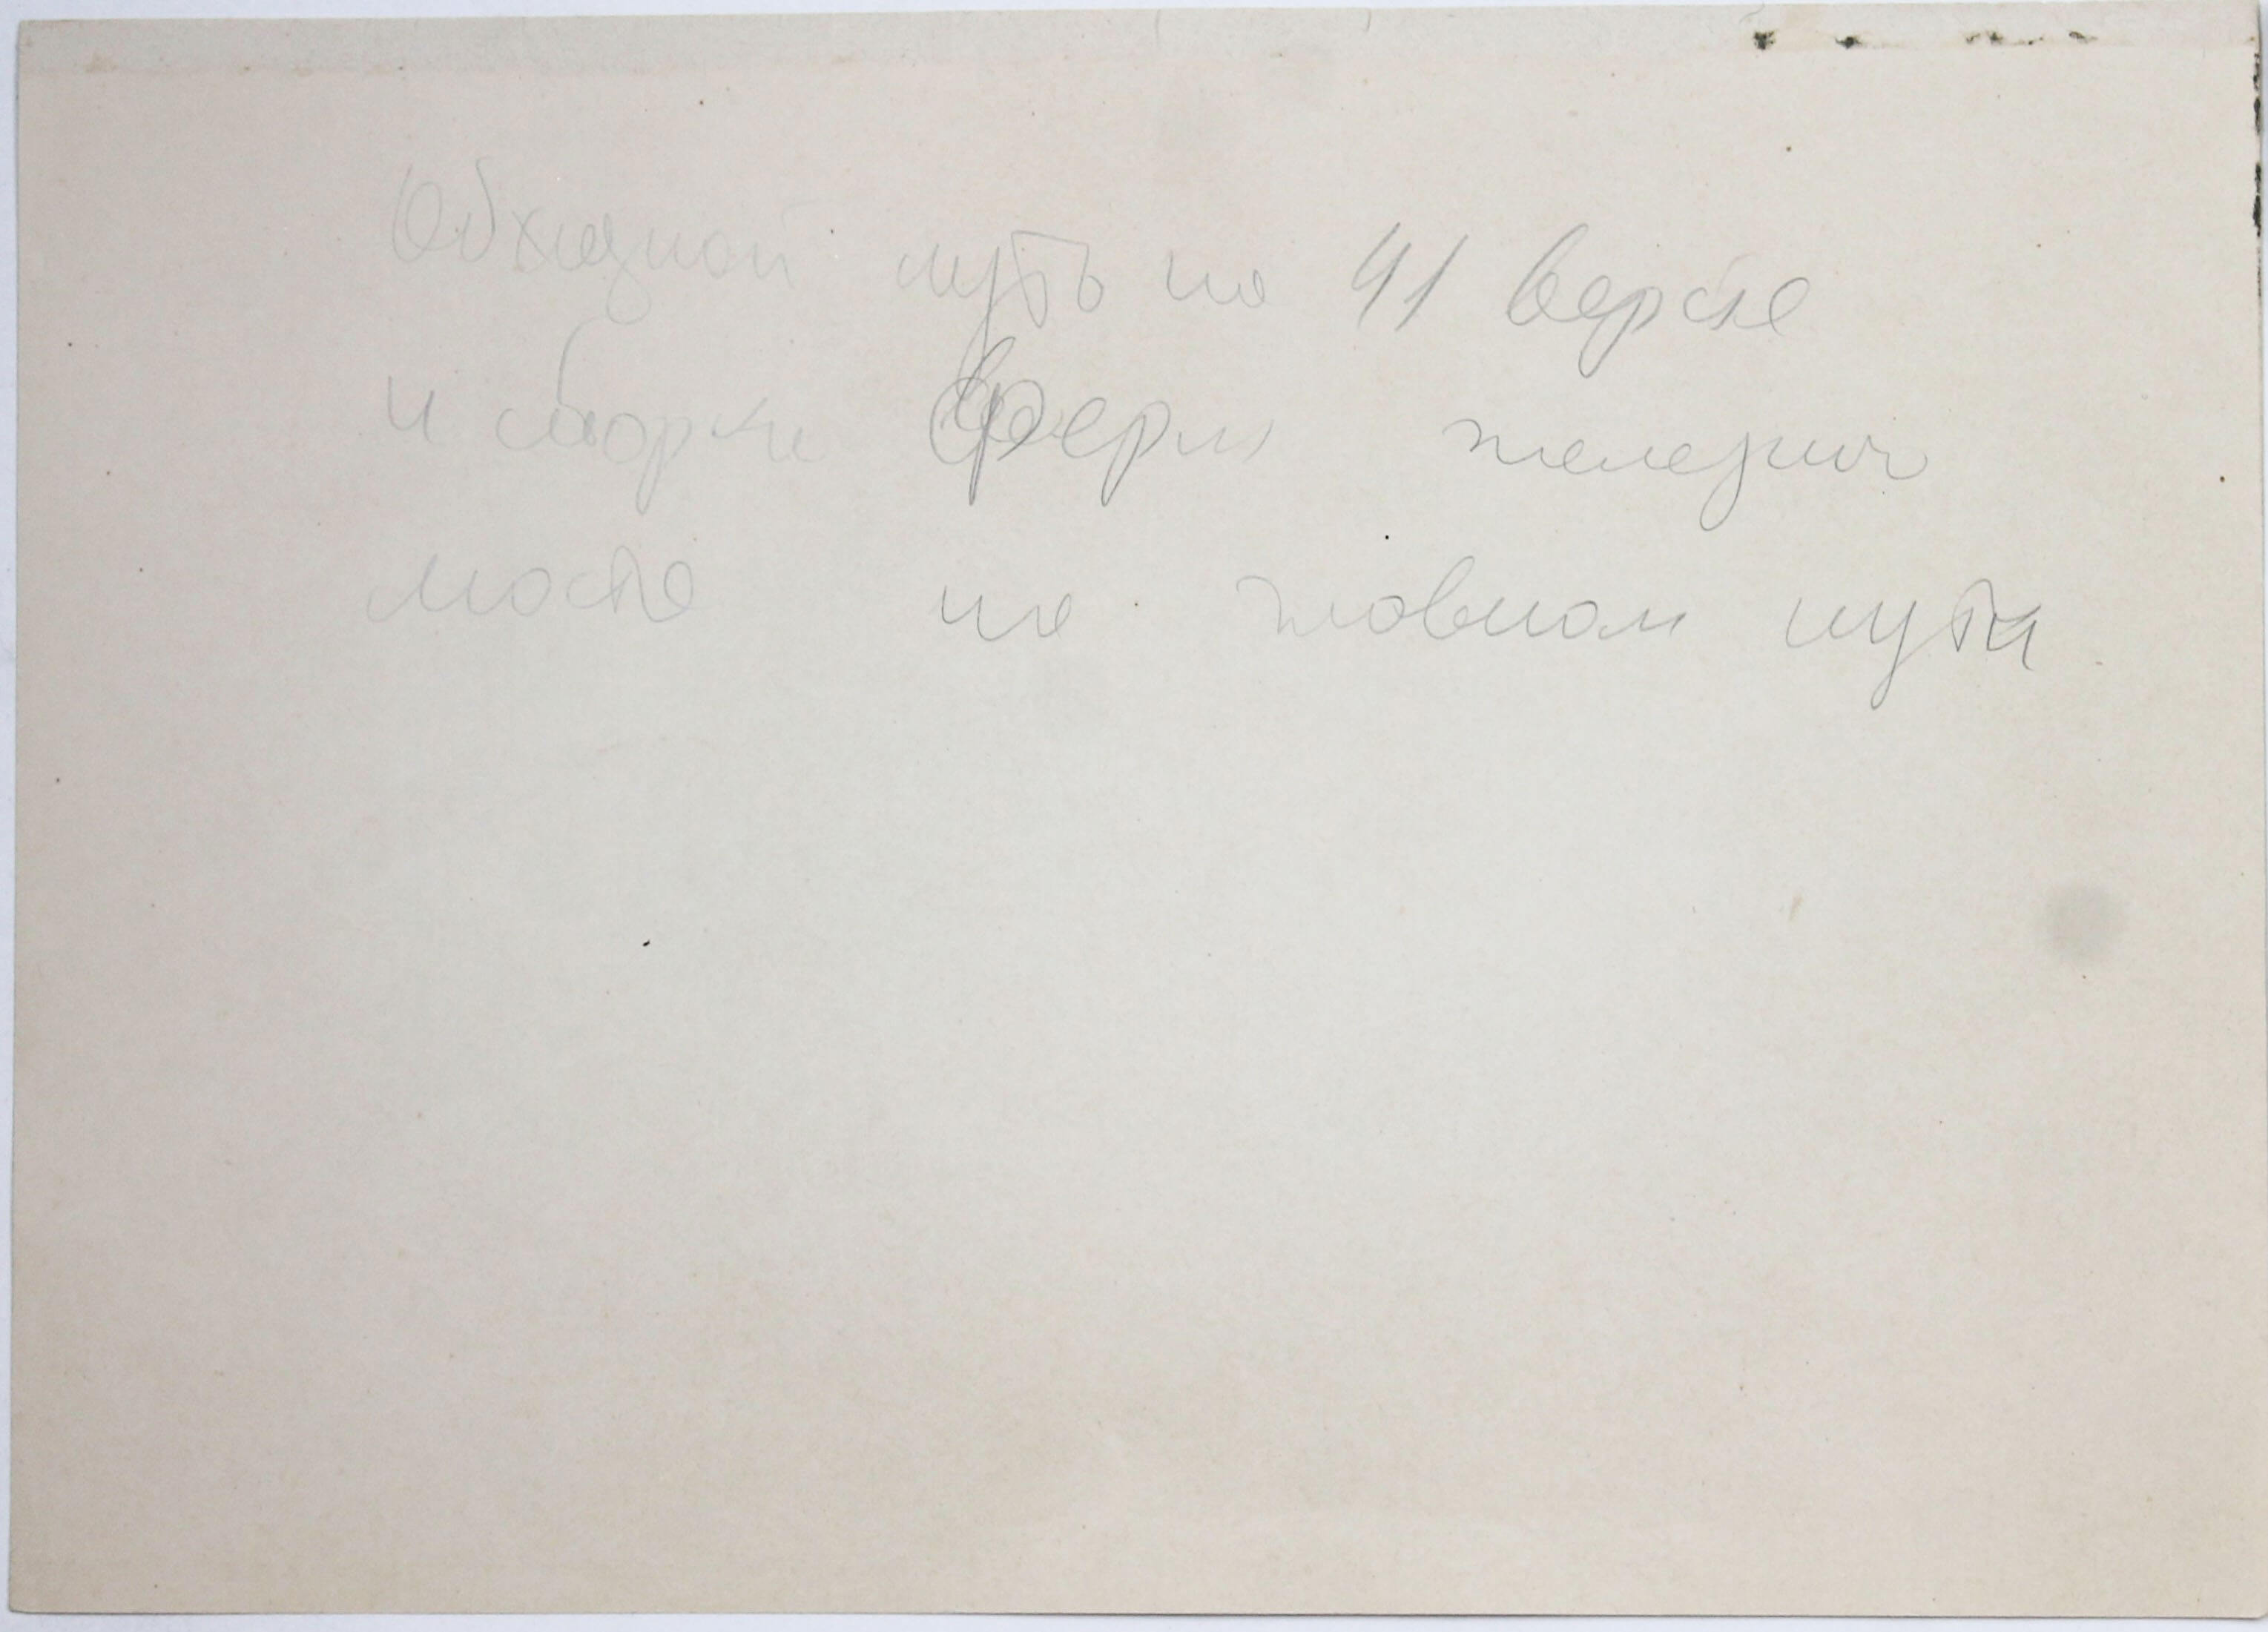 Обходной путь на 41 версте
и сборка ферм железног
моста на главном пути